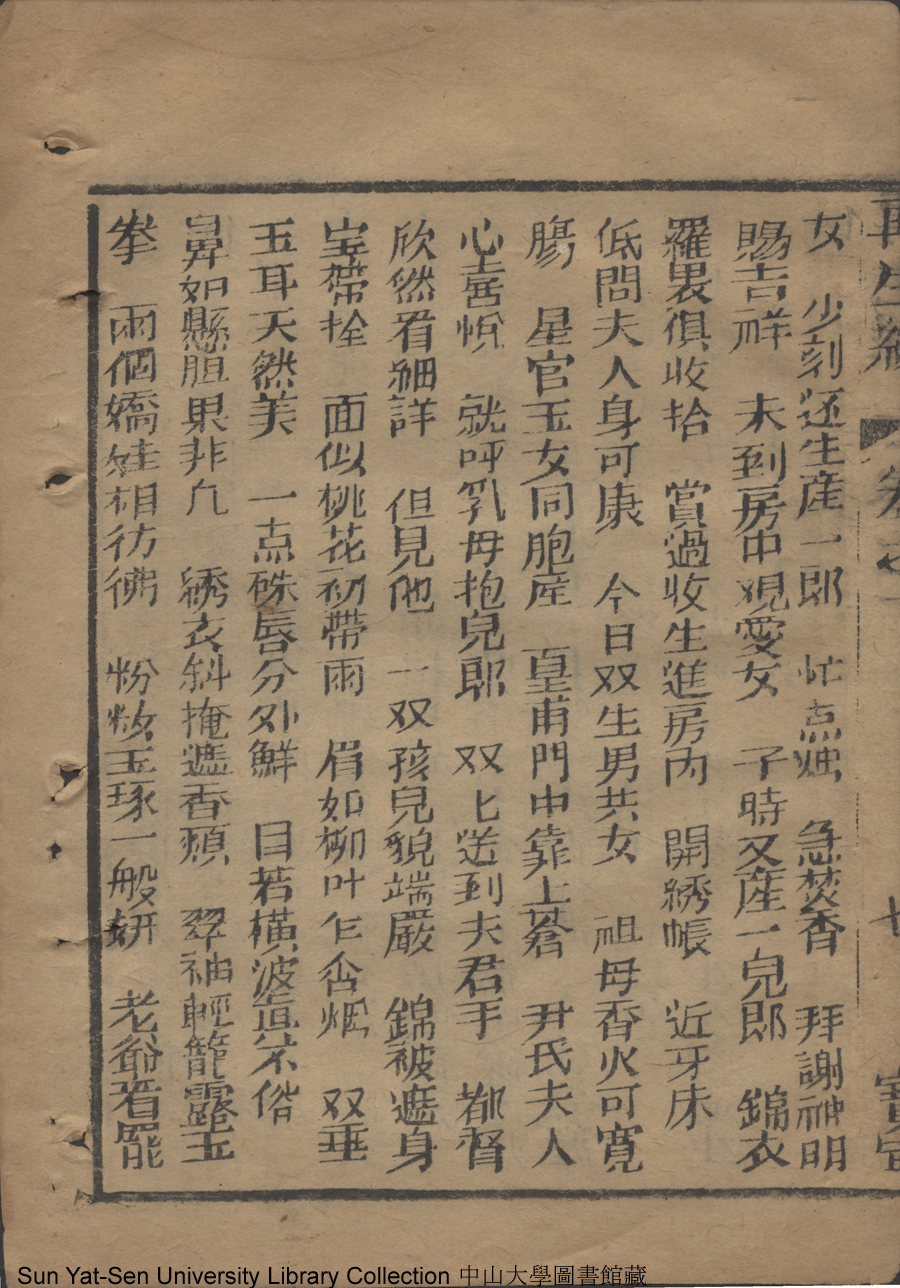 再生緣 卷之一 七
女 少刻还生産一郎 忙点烛 急焚香 拜謝神明
賜吉祥 未到房中观愛女 子時又産一兒郎 錦衣
羅裹俱收拾 賞過收生進房内 開綉帳 近牙床
低問夫人身可康 今日双生男共女 祖母香火可寛
腸 星官玉女同胞産 皇甫門中靠上蒼 尹氏夫人
心喜悅 就呼乳母抱兒郎 双匕送到夫君手 都督
欣然看細詳 但見他 一双孩兒貌端嚴 錦被遮身
宝帶拴 面似桃花初帶雨 眉如柳叶乍含烟 双垂
玉耳天然美 一点硃唇分外鮮 目若橫波宜不俗
鼻如懸胆果非凢 綉衣斜掩遮香頬 翠袖輕籠露玉
拳 兩個嬌娃相彷彿 粉妝玉琢一般妍 老爺看罷
Sun Yat-Sen University Library Collection 中山大學圖書館藏